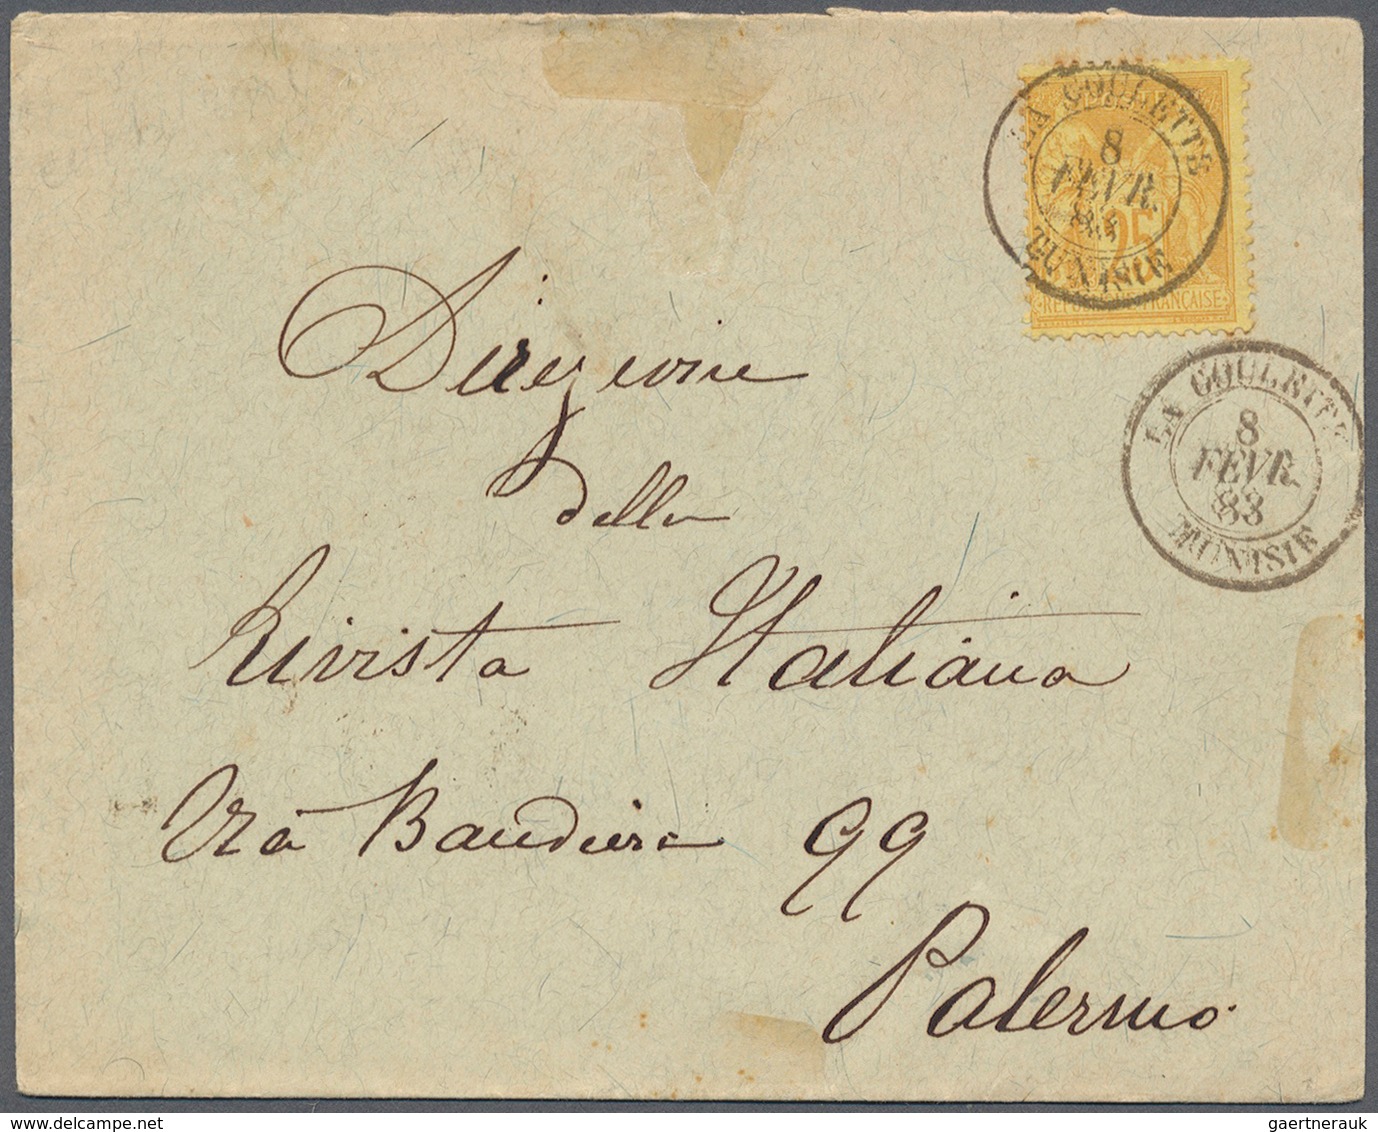 LA GOULETTE
8
FEVR.
83
TUNISIE
25
REPUBLIQUE FRANCAISE
LA GOULETTE
8
FEVR.
83
TUNISIE
Direzione
della
Rivista Italiana
Via Bandiera 99
Palermo
gaertnerauk